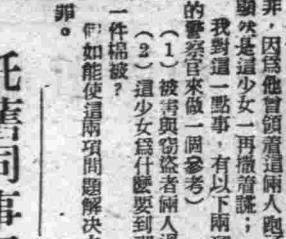 罪，因爲他曾領着這倆人跑
顯然是這少女一再撒着謊；
我對這一點事，有以下兩
的警察官來做一個參考）
（１）被害與竊盜者倆人
（２）這少女爲什麼要到
一件棉被？
們如能使這兩項問題解決
罪。
託舊同事